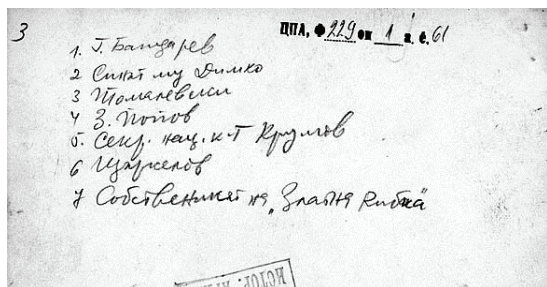 3
ЦПА, Ф 229 оп 1 а. е. 61
1. Г. Бандарев
2 Синът му Димко
3 Томалевски
4 З. Попов
5. Секр. нац. к-т Крумов
6 Щаркелов
7 Собственикът на „Златна Рибка“
ИСТОР.